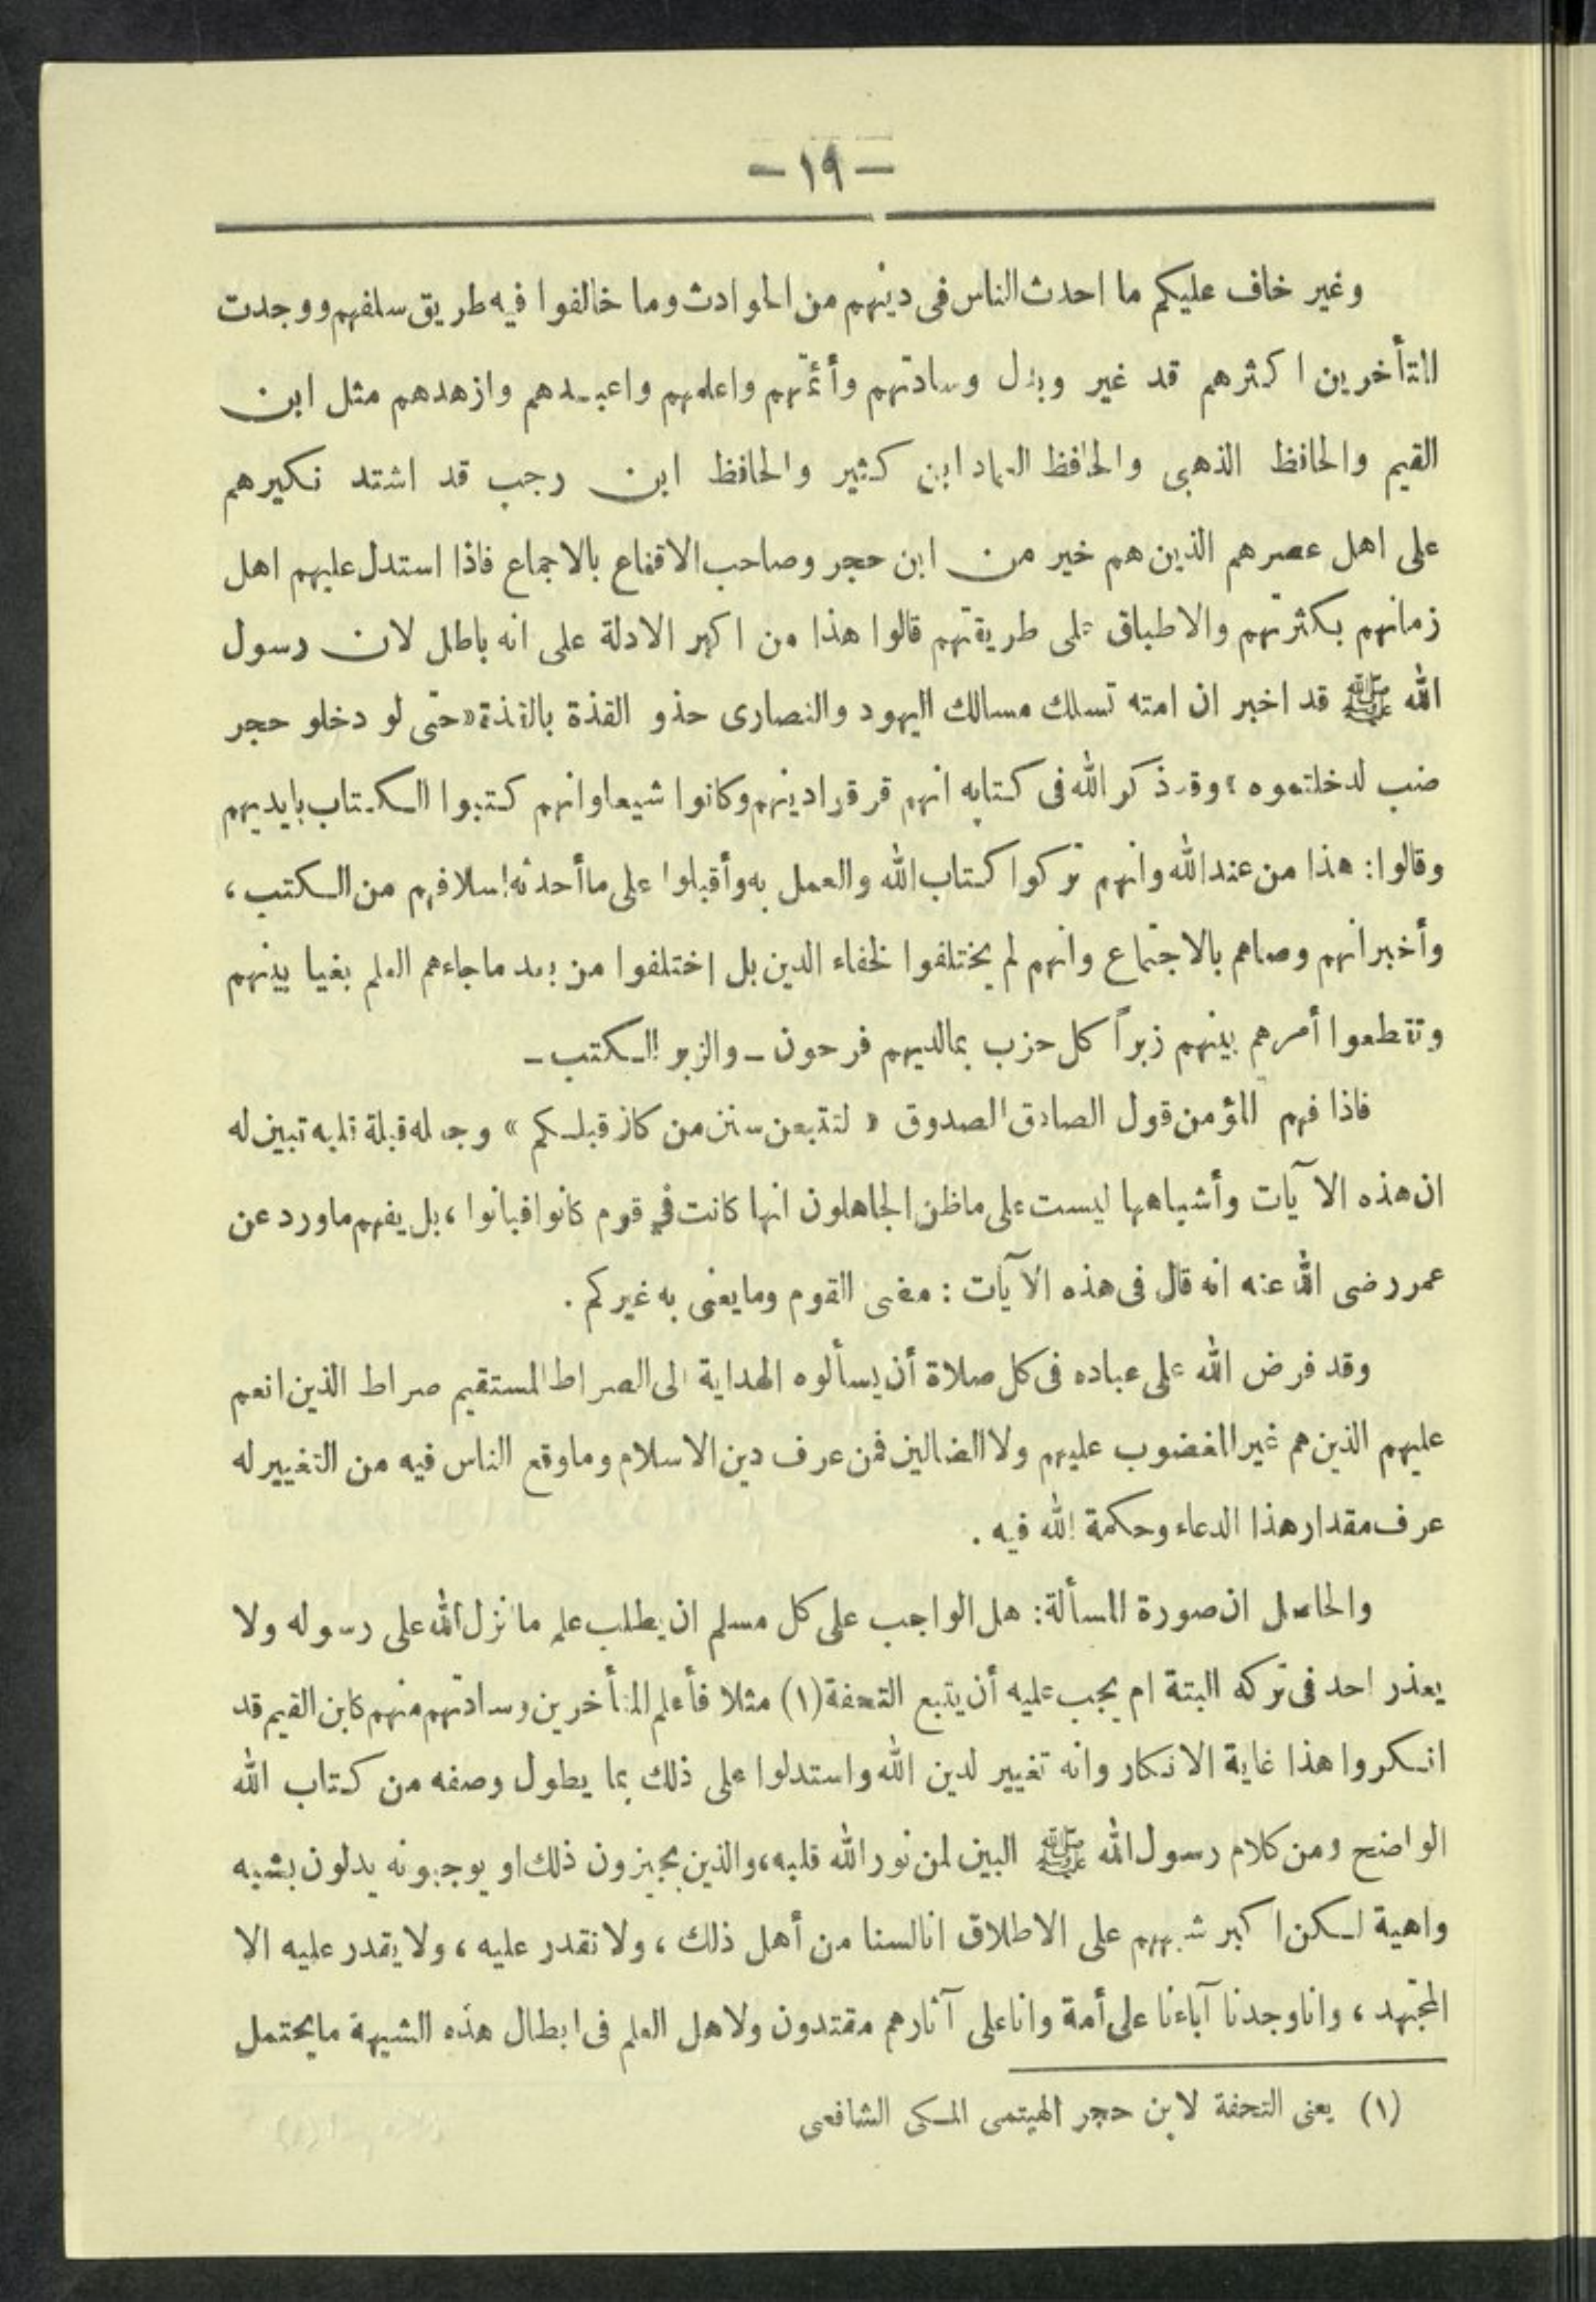 — ١٩ —
وغير خاف عليكم ما احدث الناس فى دينهم من الحوادث وما خالفوا فيه طريق سلفهم ووجدت
المتأخرين اكثرهم قد غير وبدل وسادتهم وأئمتهم واعلمهم واعبدهم وازهدهم مثل ابن
القيم والحافظ الذهبى والحافظ العماد ابن كثير والحافظ ابن رجب قد اشتد نكيرهم
على اهل عصرهم الذين هم خير من ابن حجر وصاحب الاقناع بالاجماع فاذا استدل عليهم اهل
زمانهم بكثرتهم والاطباق على طريقتهم قالوا هذا من اكبر الادلة على انه باطل لان رسول
الله ﷺ قد اخبر ان امته تسلك مسالك اليهود والنصارى حذو القذة بالقذة «حتى لو دخلو حجر
ضب لدخلتموه» وقد ذكر الله فى كتابه انهم فرقوا دينهم وكانوا شيعا وانهم كتبوا الكتاب بايديهم
وقالوا: هذا من عند الله وانهم تركوا كتاب الله والعمل به وأقبلوا على ما أحدثه اسلافهم من الكتب ،
وأخبر انهم وصاهم بالاجتماع وانهم لم يختلفوا لخفاء الدين بل اختلفوا من بعد ما جاءهم العلم بغيا بينهم
وتقطعوا أمرهم بينهم زبراً كل حزب بما لديهم فرحون ـ والزبر الكتب ـ
فاذا فهم المؤمن قول الصادق الصدوق « لتتبعن سنن من كان قبلكم » وجعله قبلة قلبه تبين له
ان هذه الآيات وأشباهها ليست على ما ظن الجاهلون انها كانت فى قوم كانوا فبانوا ، بل يفهم ما ورد عن
عمر رضى الله عنه انه قال فى هذه الآيات : مضى القوم وما يعنى به غيركم .
وقد فرض الله على عباده فى كل صلاة أن يسألوه الهداية الى الصراط المستقيم صراط الذين انعم
عليهم الذين هم غير المغضوب عليهم ولا الضالين فمن عرف دين الاسلام وما وقع الناس فيه من التغيير له
عرف مقدار هذا الدعاء وحكمة الله فيه .
والحاصل ان صورة المسألة: هل الواجب على كل مسلم ان يطلب علم ما نزل الله على رسوله ولا
يعذر احد فى تركه البتة ام يجب عليه أن يتبع التحفة (١) مثلا فأعلم المتأخرين وسادتهم منهم كابن القيم قد
انكروا هذا غاية الانكار وانه تغيير لدين الله واستدلوا على ذلك بما يطول وصفه من كتاب الله
الواضح ومن كلام رسول الله ﷺ البين لمن نور الله قلبه، والذين يجيزون ذلك او يوجبونه يدلون بشبه
واهية لكن اكبر شبههم على الاطلاق انا لسنا من أهل ذلك ، ولا نقدر عليه ، ولا يقدر عليه الا
المجتهد ، وانا وجدنا آباءنا على أمة وانا على آثارهم مقتدون ولاهل العلم فى ابطال هذه الشبهة ما يحتمل
(١) يعنى التحفة لابن حجر الهيتمى المكى الشافعى